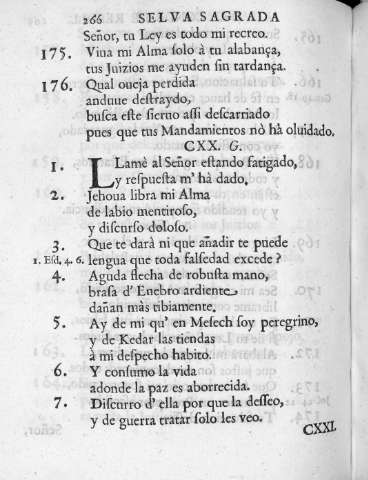 266 SELVA SAGRADA
Señor, tu Ley es todo mi recreo.
175. Viua mi Alma solo à tu alabança,
tus Juizios me ayuden sin tardança.
176. Qual oueja perdida
anduue destraydo,
busca este sieruo assi descarriado
pues que tus Mandamientos nò hà oluidado.
CXX. G.
1. LLamè al Señor estando fatigado,
y respuesta m' hà dado,
2. Jehoua libra mi Alma
de labio mentiroso,
y discurso doloso.
3. Que te darà ni que añadir te puede
1. Esd, 4. 6. lengua que toda falsedad excede?
4. Aguda flecha de robusta mano,
brasa d' Enebro ardiente
dañan màs tibiamente.
5. Ay de mi qu' en Mesech soy peregrino,
y de Kedar las tiendas
à mi despecho habito.
6. Y consumo la vida
adonde la paz es aborrecida.
7. Discurro d' ella por que la desseo,
y de guerra tratar solo les veo.
CXXI.